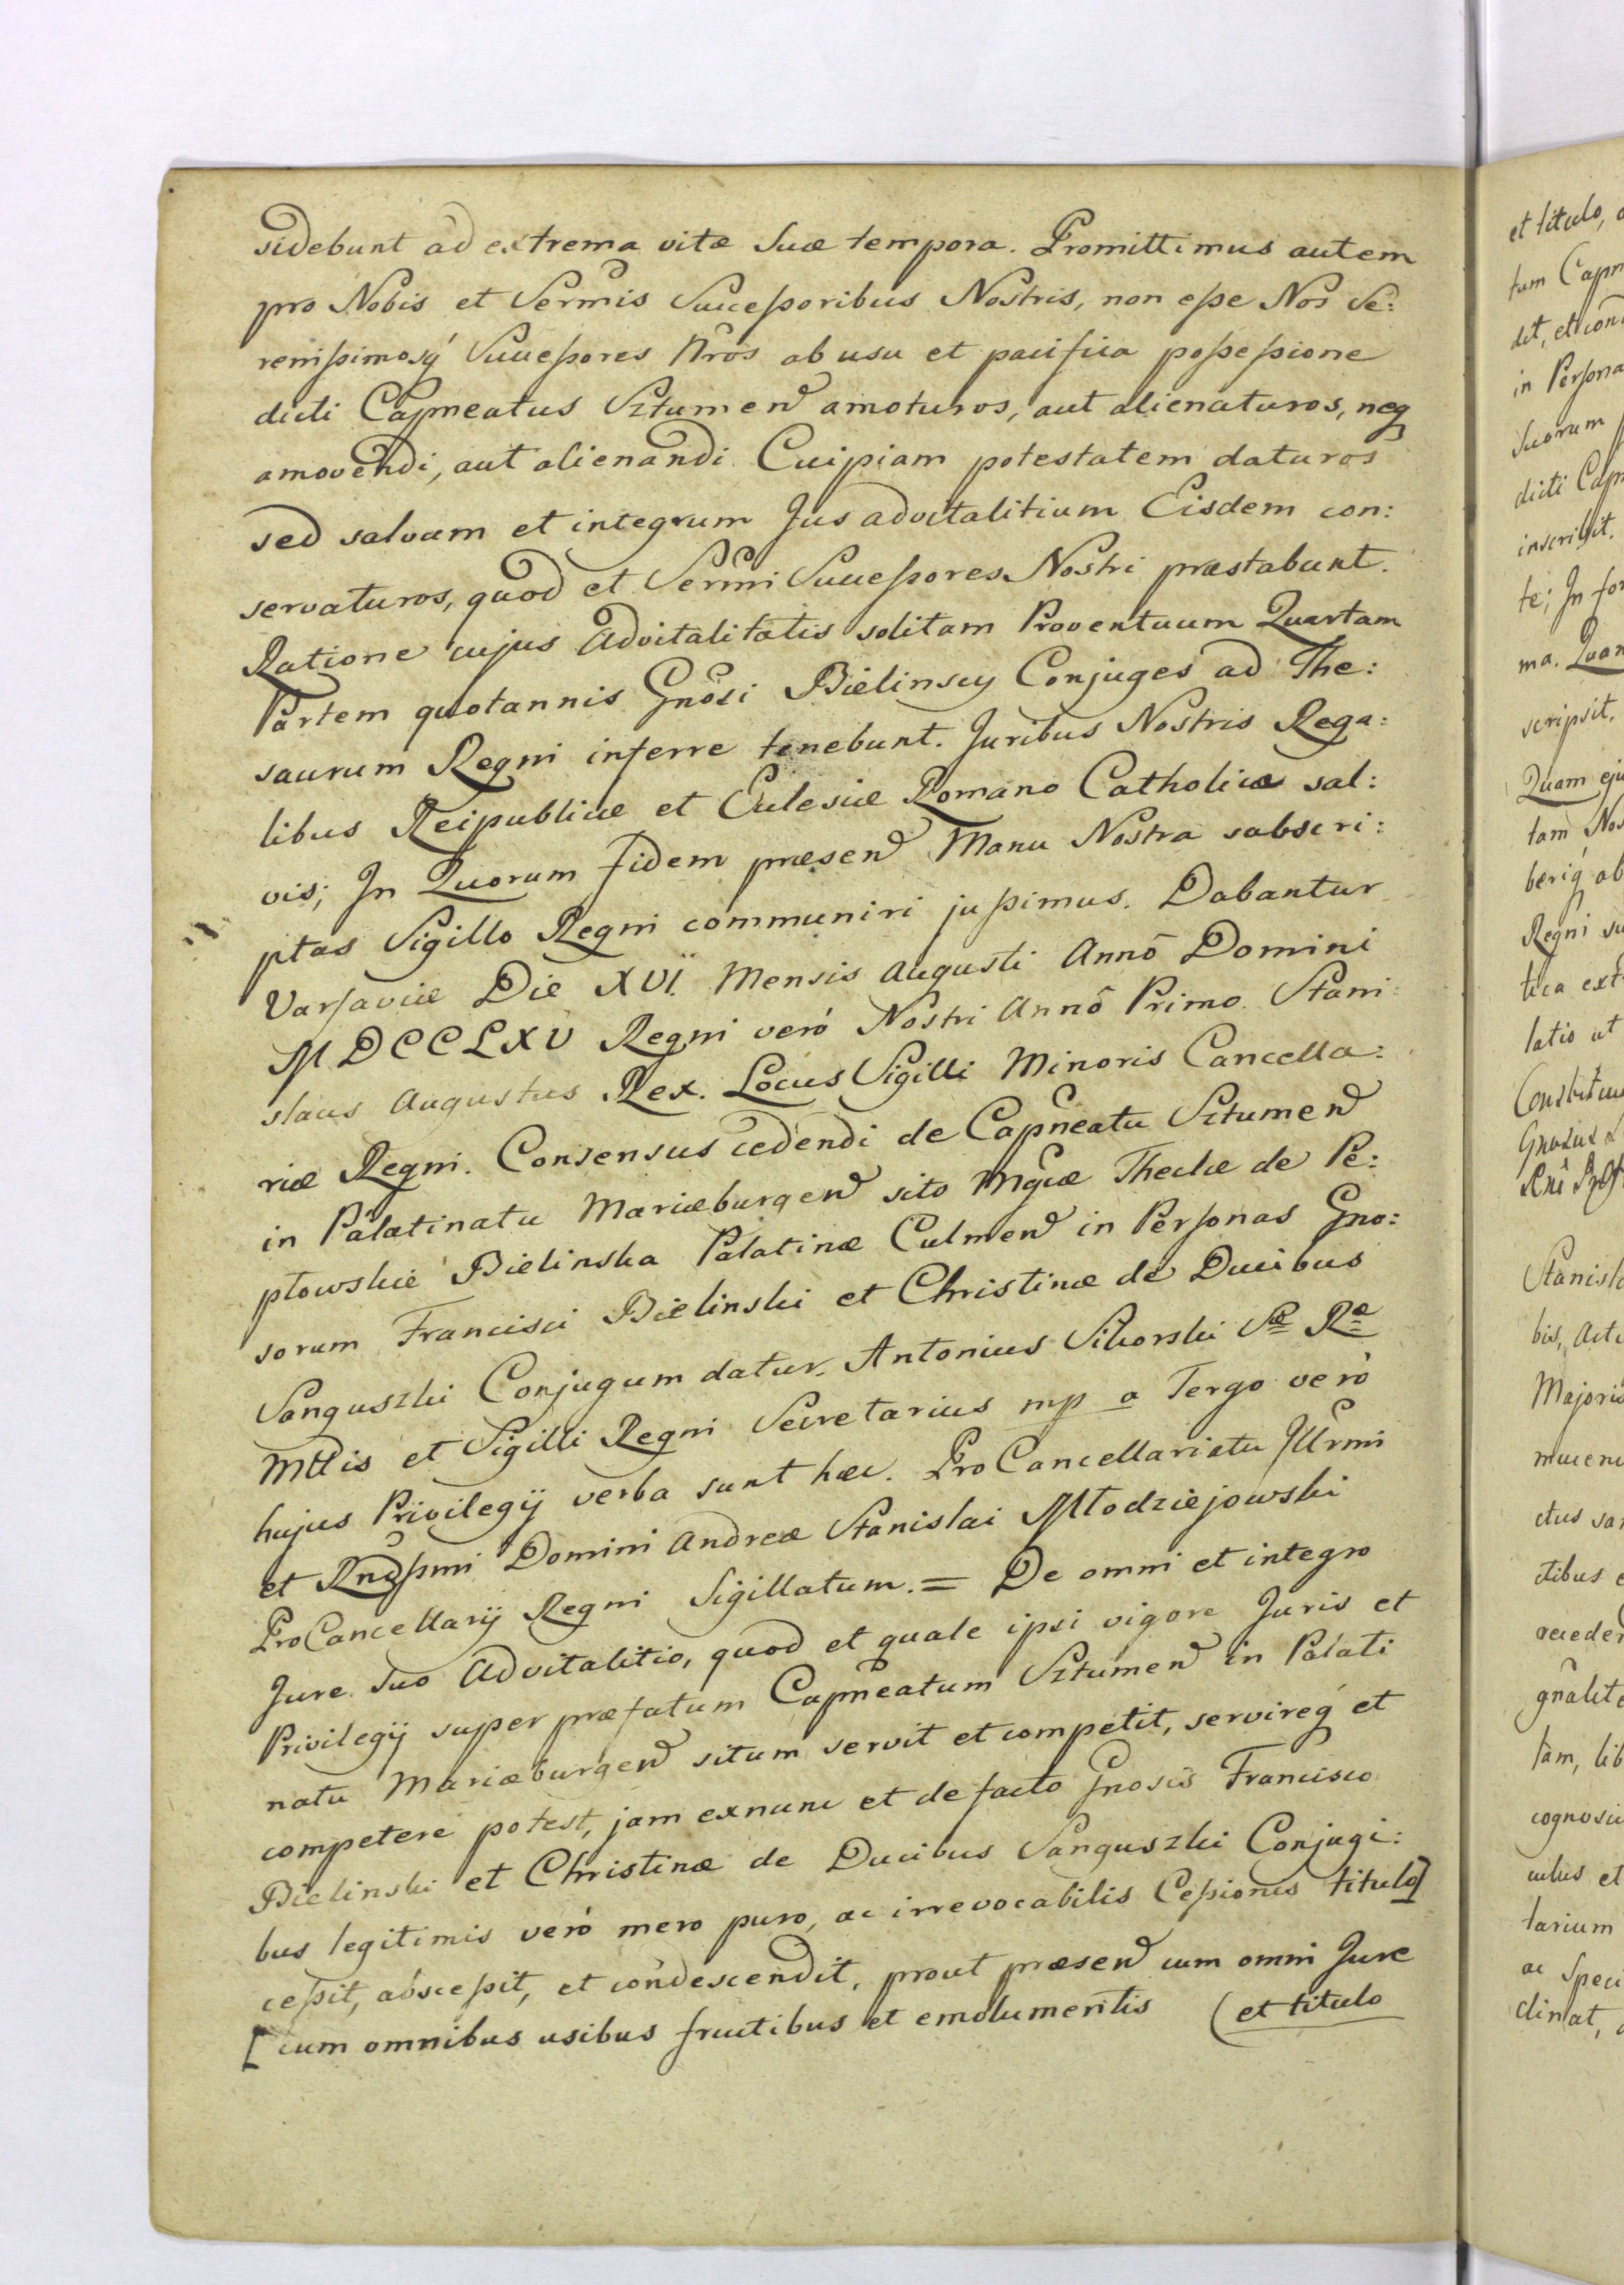 sidebunt ad extrema vitæ suæ tempora. Promittimus autem
pro Nobis et Sermis Successoribus Nostris, non esse Nos Se:
renissimosq́ Successores Nrôs ab usu et pacifica possessione
dicti Capneatus Sztumen̄ amoturos, aut alienaturos, neq
amovendi, aut alienandi Cuipiam potestatem daturos
sed salvum et integrum Jus advitalitium Eisdem con:
servaturos, quod et Sermi Successores Nostri præstabunt.
Ratione cujus Advitalitatis solitam Proventuum Quartam
Partem quotannis Gnosi Bielinscy Conjuges ad The:
saurum Regni inferre tenebunt. Juribus Nostris Rega:
libus Reipublicæ et Ecclesiæ Romano Catholicæ sal:
vis; In Quorum fidem præsen̄ Manu Nostra subscri:
ptas Sigillo Regni communiri jussimus. Dabantur
Varsaviæ Die XVI. Mensis Augusti Annô Domini
MDCCLXV Regni veró Nostri Annô Primo. Stani:
slaus Augustus Rex. Locus Sigilli Minoris Cancella:
riæ Regni. Consensus cedendi de Capneatu Sztumen̄
in Palatinatu Mariæburgen̄ sito Mgcæ Theclæ de Pe:
ptowskie Bielinska Palatinæ Culmen̄ in Personas Gno:
sorum Francisci Bielinski et Christinæ de Ducibus
Sanguszki Conjugum datur. Antonius Sikorski Sæ Ræ
Mttis et Sigilli Regni Secretarius mp a Tergo veró
hujus Privilegij verba sunt hæc. ProCancellariatu Jllrmi
et Rndssmi Domini Andreæ Stanislai Młodziejowski
ProCancellarij Regni Sigillatum. = De omni et integro
Jure suo Advitalitio, quod et quale ipsi vigore Juris et
Privilegij super præfatum Capneatum Sztumen̄ in Palati
natu Mariæburgen̄ situm servit et competit, servireq́ et
competere potest, jam exnunc et de facto Gnosis Francisco
Bielinski et Christinæ de Ducibus Sanguszki Conjugi:
bus legitimis veró mero puro, ac irrevocabilis Cessionis titulo]
cessit, abscessit, et condescendit, prout præsen̄ cum omni Jure
[cum omnibus usibus fructibus et emolumentis (et titulo
et titulo,
tum Capn
dit, et con
in Persona
suorum
dicti Cap
inscribit.
te; In for
ma. Quam
scripsit,
Quam eju
tam Nos
beriq́ ab
Regni su
tica ext
latio ut
Constitu
Gnosus
Stanisla
bis, Actu
Majoris
ctus san
ctibus
recede
gnâlite
tàm, lib
cognosci
culus et
tarium
ac speci
clinat,